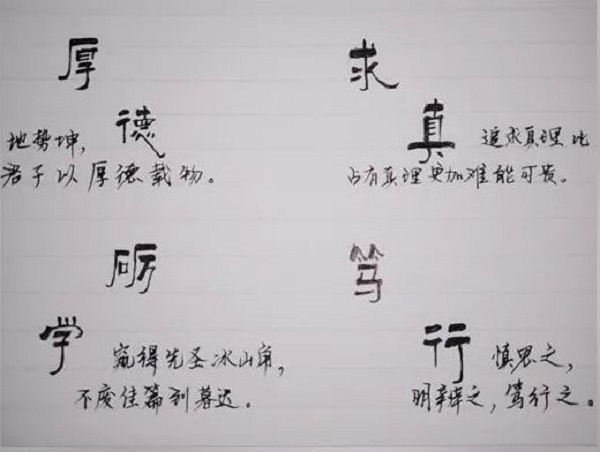 厚
德
地势坤，
君子以厚德载物。
求
真
追求真理比
占有真理更加难能可贵。
砺
学
窥得先圣冰山角，
不废佳篇到暮迟。
笃
行
慎思之，
明辨之，笃行之。